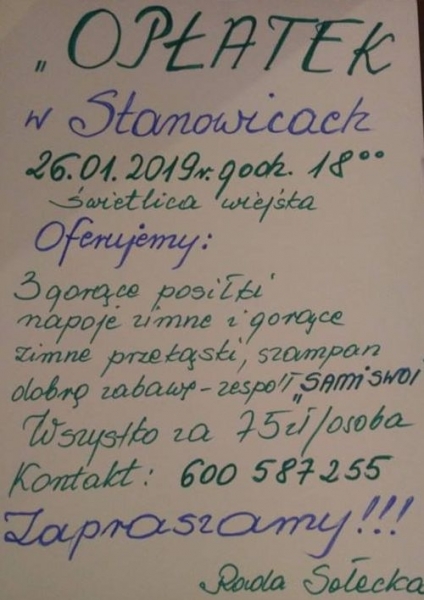 „OPŁATEK
w Stanowicach
26.01.2019r. godz. 18⁰⁰
świetlica wiejska
Oferujemy:
3 gorące posiłki
napoje zimne i gorące
zimne przekąski, szampan
dobrą zabawę - zespół „SAMI SWOI
Wszystko za 75zł/osoba
Kontakt: 600 587 255
Zapraszamy!!!
Rada Sołecka